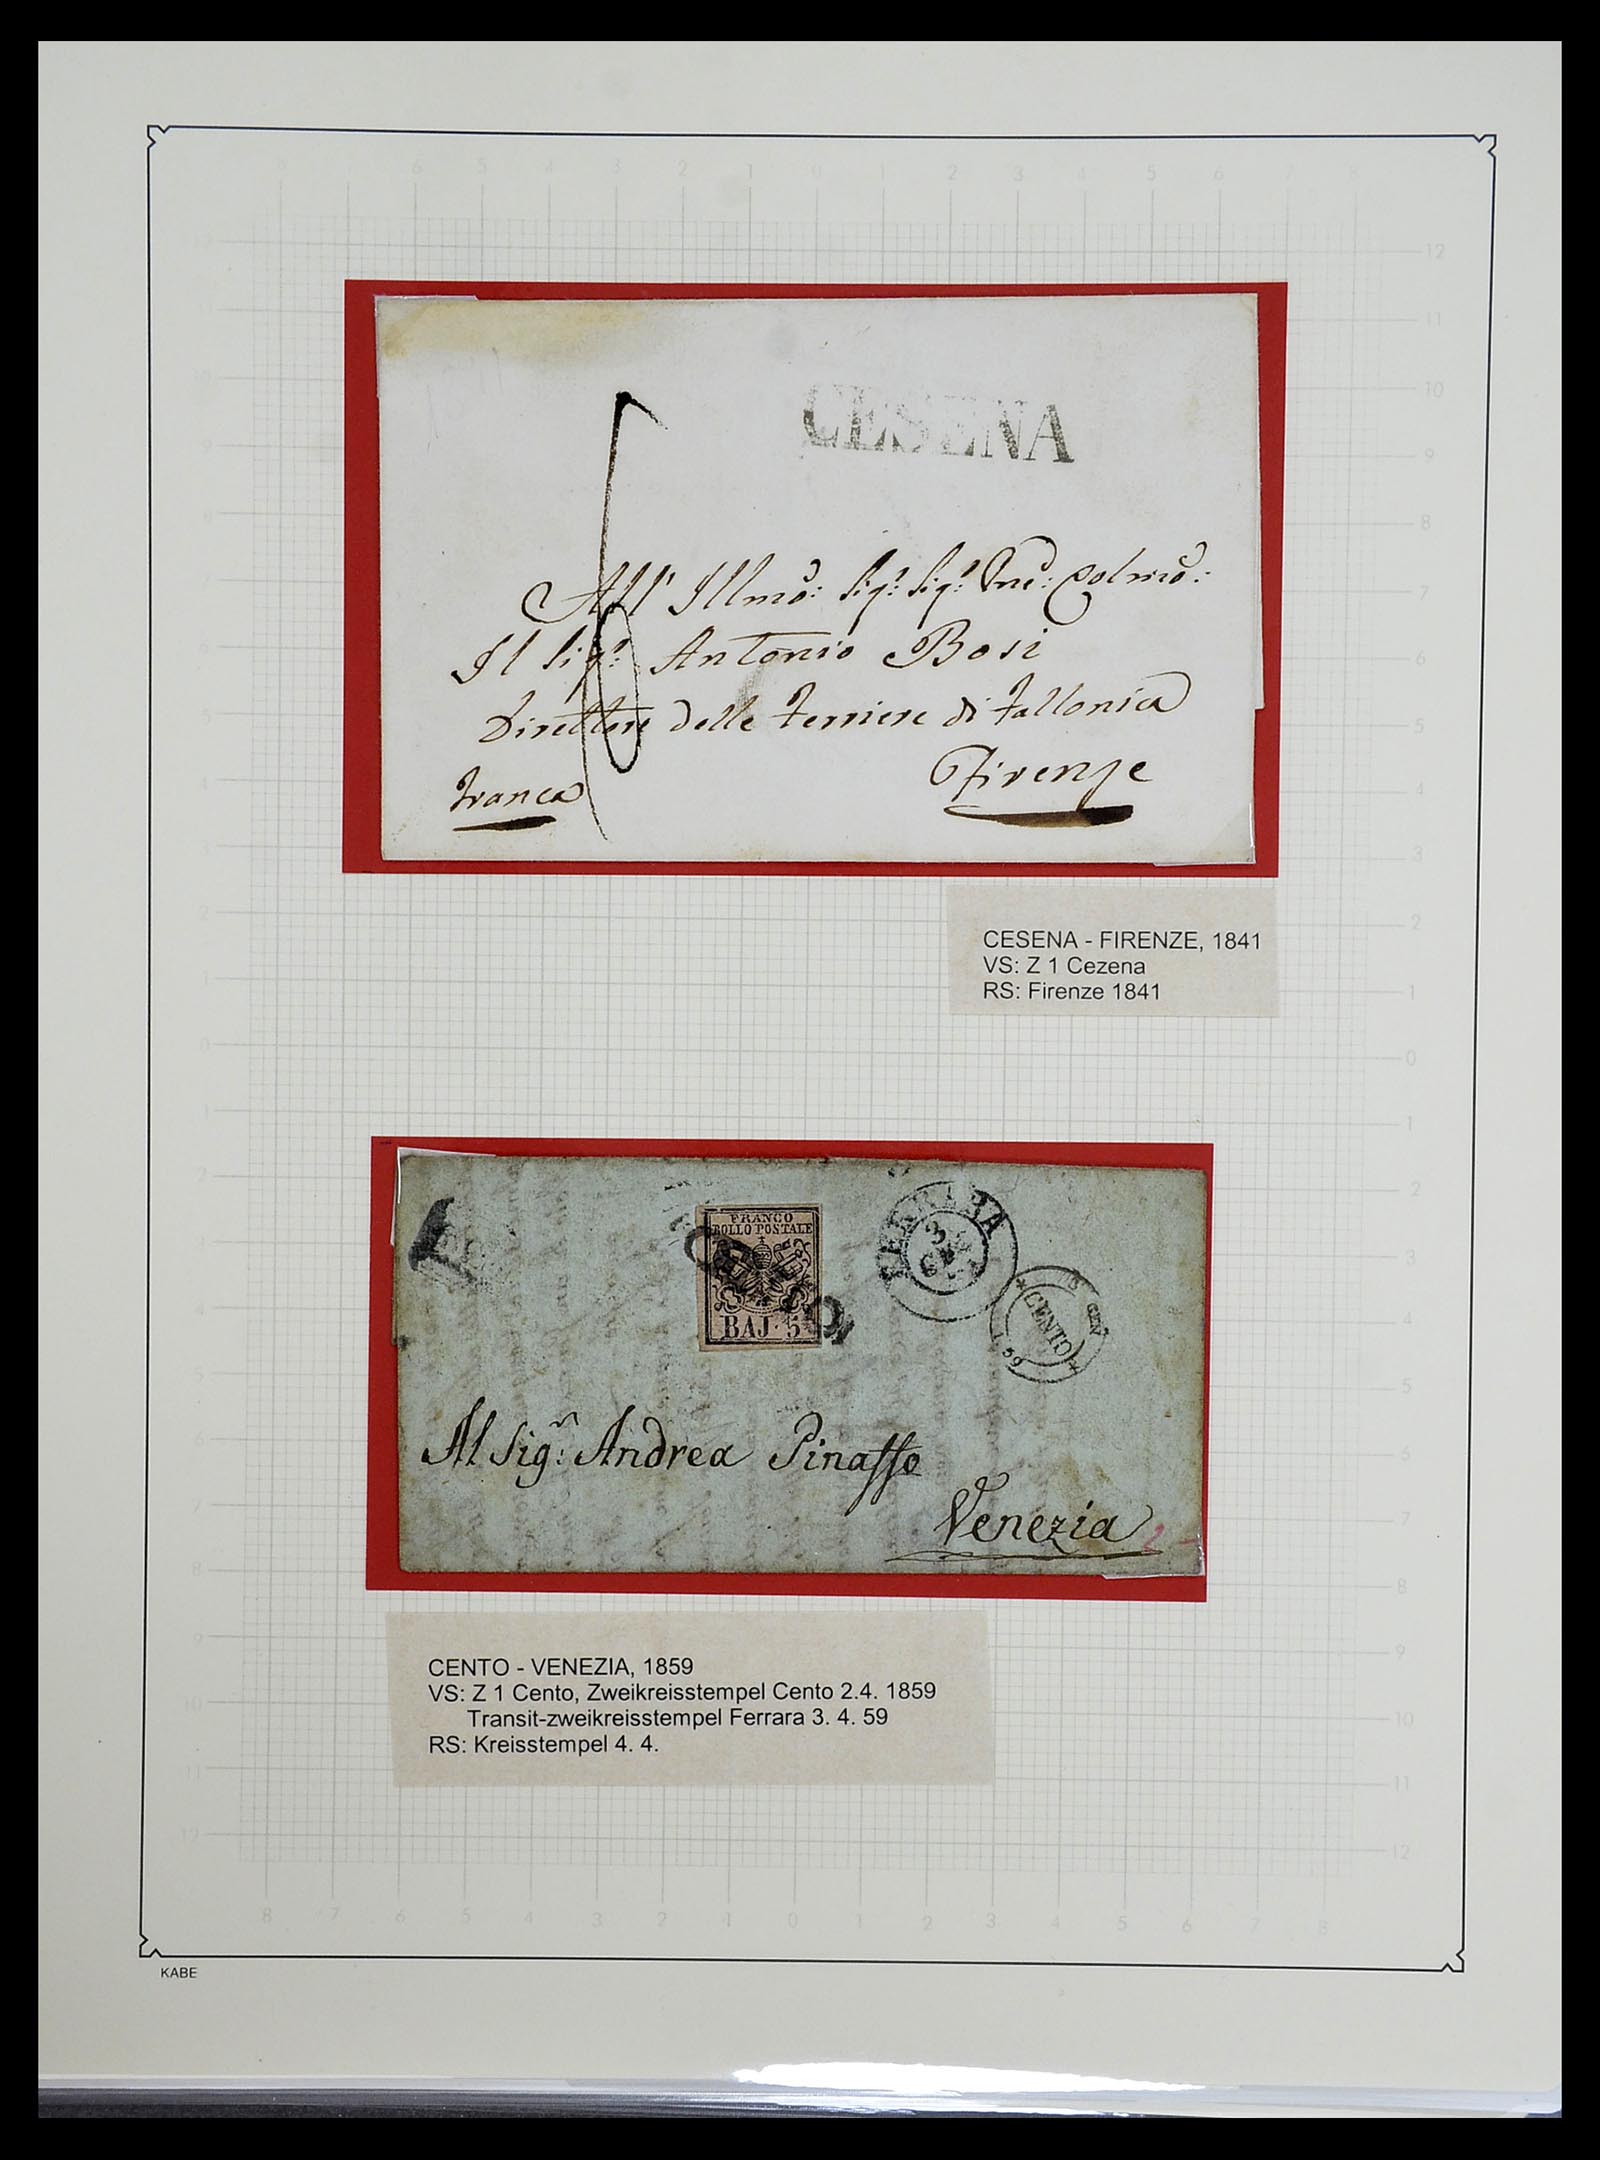 CESENA
All' Illmo: Sigr: Sigr: Pne: Colmo:
Il Sigr: Antonio Bosi
Direttore delle ferriere di Follonica
Firenze
Franca
CESENA - FIRENZE, 1841
VS: Z 1 Cezena
RS: Firenze 1841
FRANCO
BOLLO POSTALE
BAJ· 5
FERRARA
3
CENTO
GEN
59
Al Sigr: Andrea Pinasso
Venezia
CENTO - VENEZIA, 1859
VS: Z 1 Cento, Zweikreisstempel Cento 2.4. 1859
Transit-zweikreisstempel Ferrara 3. 4. 59
RS: Kreisstempel 4. 4.
KABE